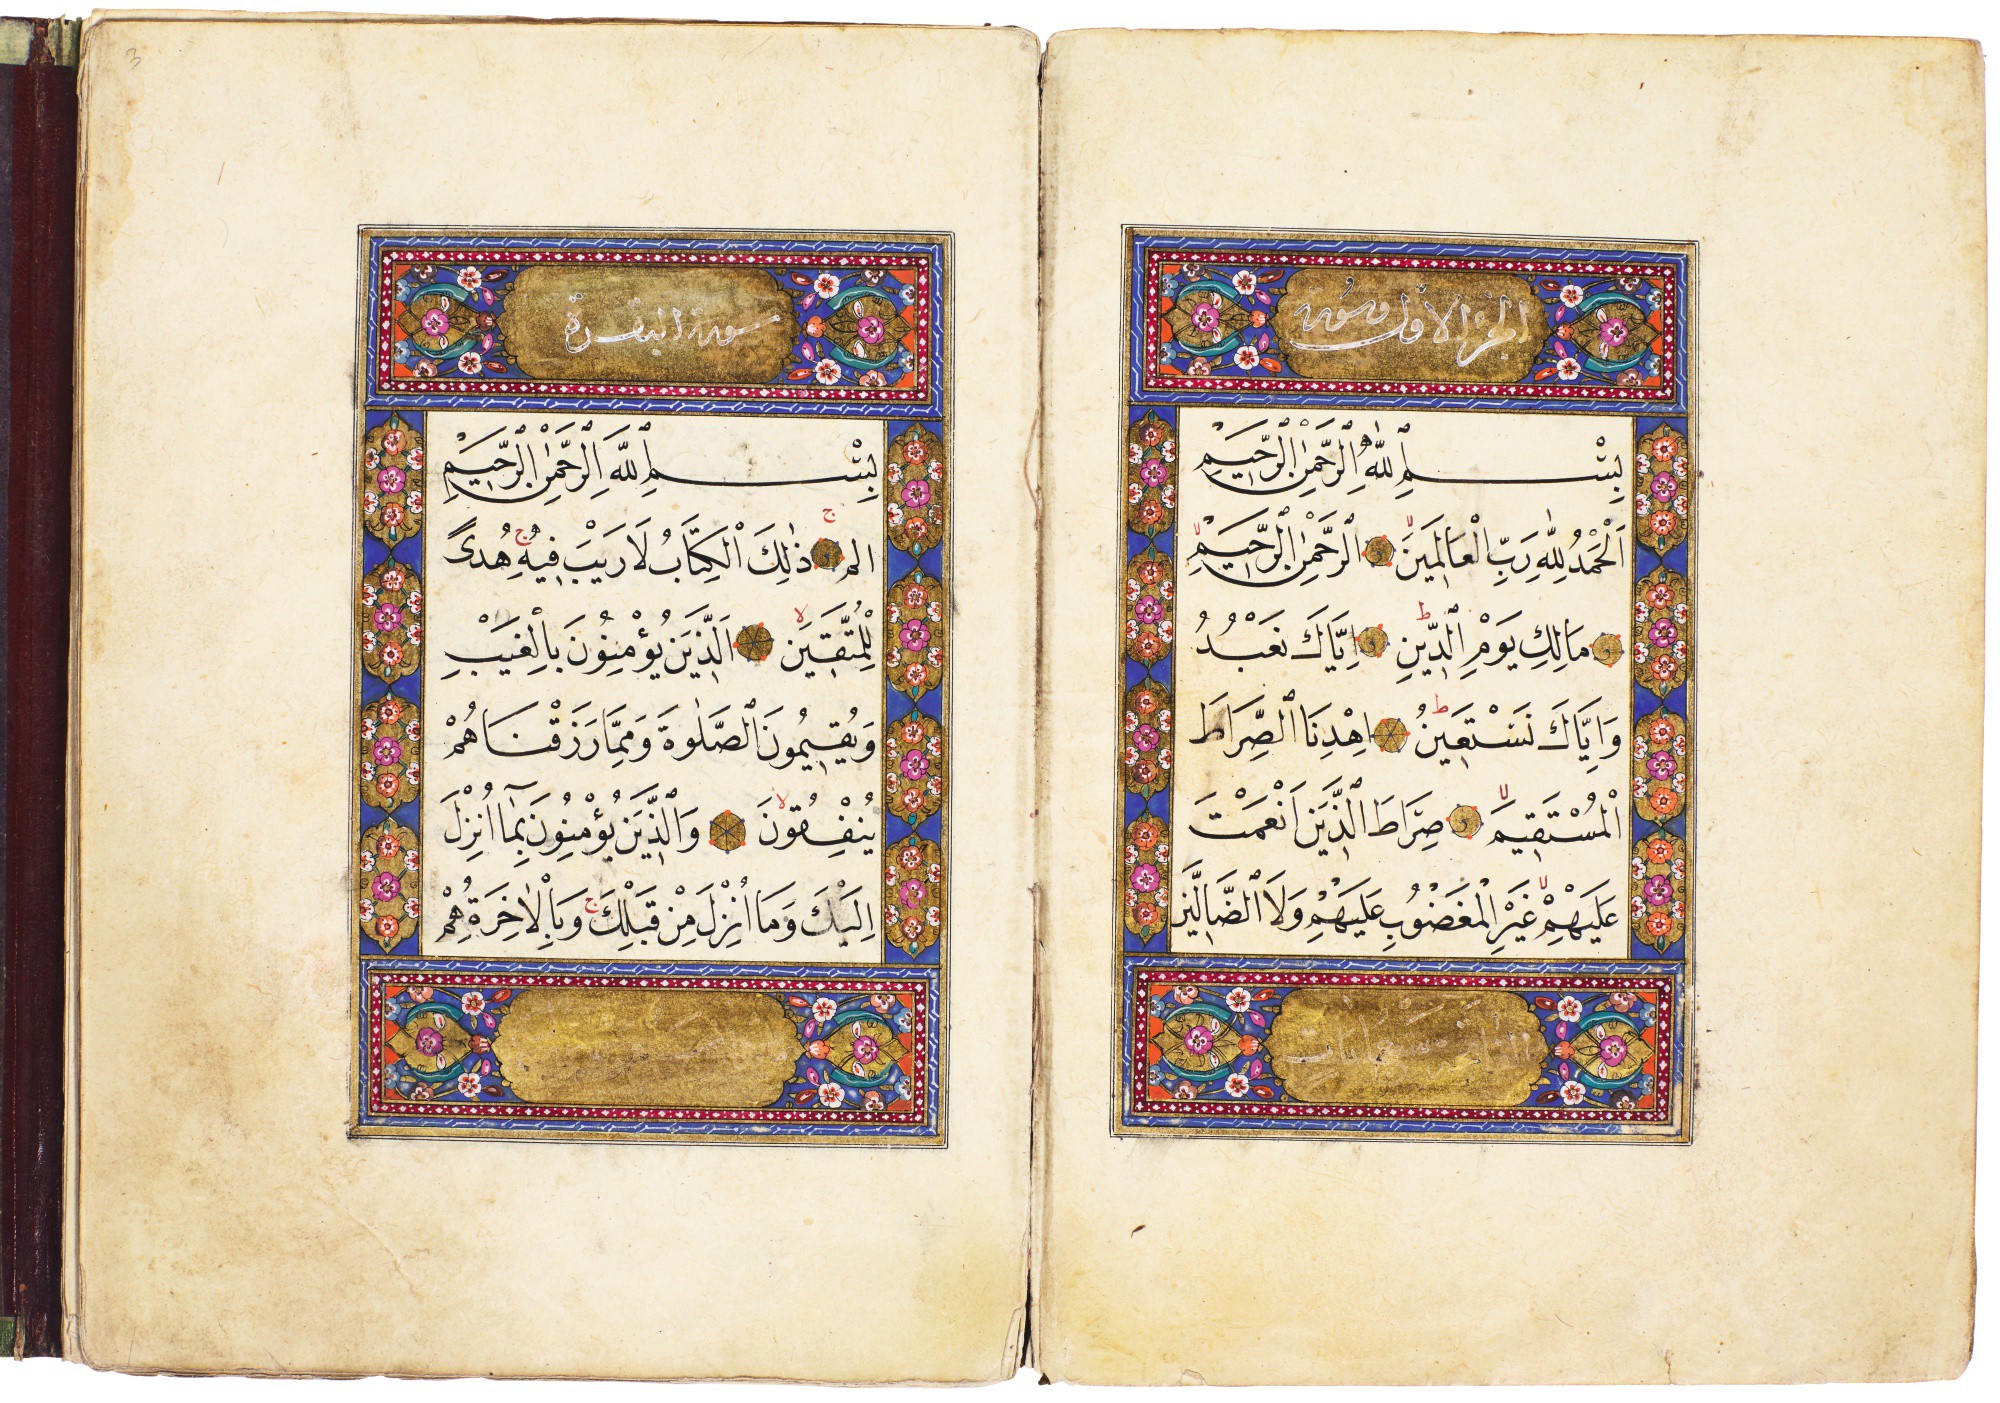 الجزء الاول وسورة
بِسْمِ اللّٰهِ الرَّحْمٰنِ الرَّحِيمِ
اَلْحَمْدُ لِلّٰهِ رَبِّ الْعَالَمِينَ لا الرَّحْمٰنِ الرَّحِيمِ لا
مَالِكِ يَوْمِ الدِّينِ ط اِيَّاكَ نَعْبُدُ
وَاِيَّاكَ نَسْتَعِينُ ط اِهْدِنَا الصِّرَاطَ
الْمُسْتَقِيمَ لا صِرَاطَ الَّذِينَ اَنْعَمْتَ
عَلَيْهِمْ لا غَيْرِ الْمَغْضُوبِ عَلَيْهِمْ وَلَا الضَّالِّينَ
سورة البقرة
بِسْمِ اللّٰهِ الرَّحْمٰنِ الرَّحِيمِ
الم ج ذٰلِكَ الْكِتَابُ لَا رَيْبَ فِيهِ ج هُدًى
لِلْمُتَّقِينَ لا اَلَّذِينَ يُؤْمِنُونَ بِالْغَيْبِ
وَيُقِيمُونَ الصَّلٰوةَ وَمِمَّا رَزَقْنَاهُمْ
يُنْفِقُونَ لا وَالَّذِينَ يُؤْمِنُونَ بِمَآ اُنْزِلَ
اِلَيْكَ وَمَا اُنْزِلَ مِنْ قَبْلِكَ ج وَبِالْاٰخِرَةِ هُمْ
3